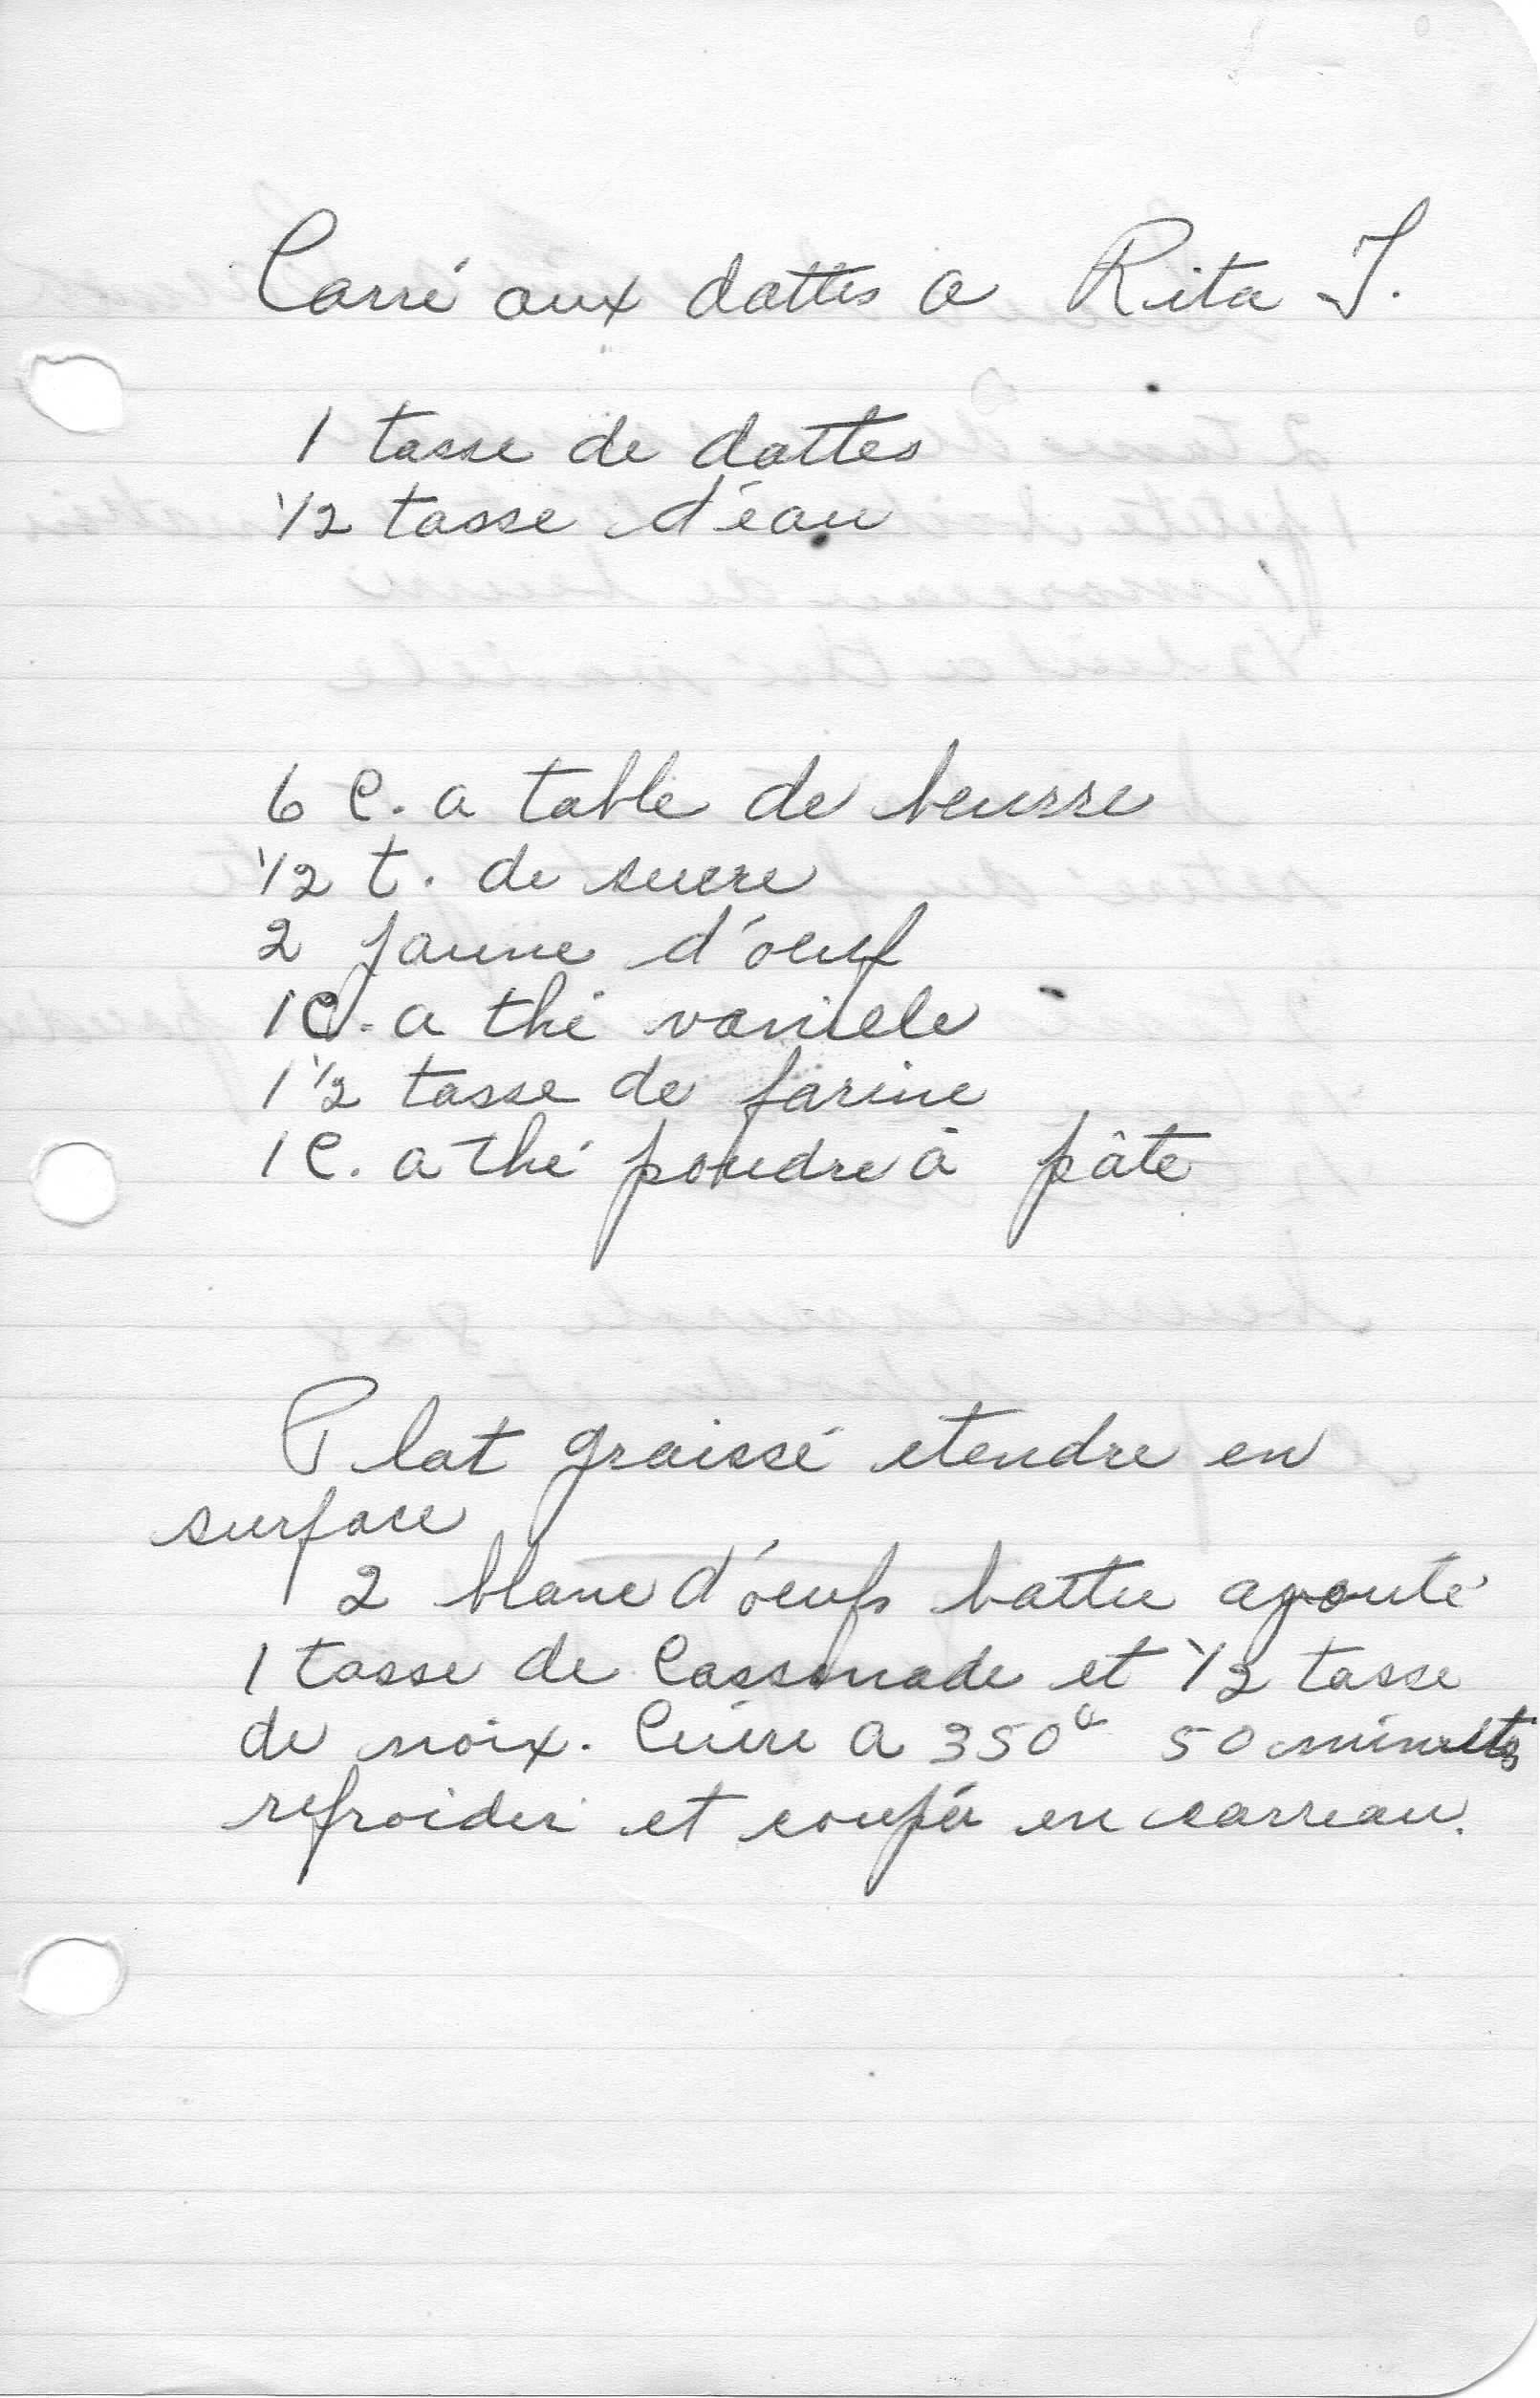 Carré aux dattes a Rita J.
1 tasse de dattes
1/2 tasse d'éau
6 C. a table de beurre
1/2 t. de sucre
2 jaune d'oeuf
1 C. a thé vaniele
1 1/2 tasse de farine
1 C. a thé poudre à pâte
Plat graissé etendre en
surface
2 blanc d'oeufs battu ajouté
1 tasse de Cassonade et 1/2 tasse
de noix. Cuire a 350° 50 minutes
refroidir et coupér en carreau.